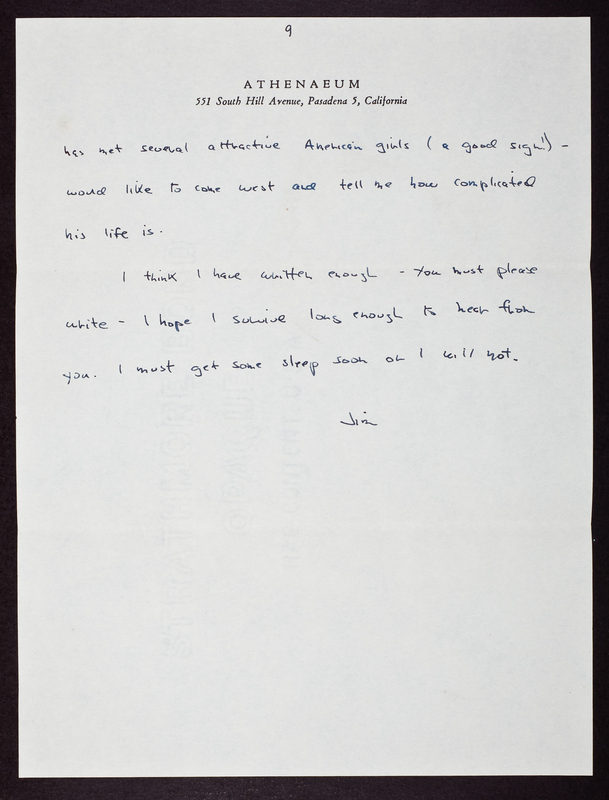 9
ATHENAEUM
551 South Hill Avenue, Pasadena 5, California
has met several attractive American girls (a good sign!) -
would like to come west and tell me how complicated
his life is.
I think I have written enough - You must please
write - I hope I survive long enough to hear from
you. I must get some sleep soon or I will not.
Jim